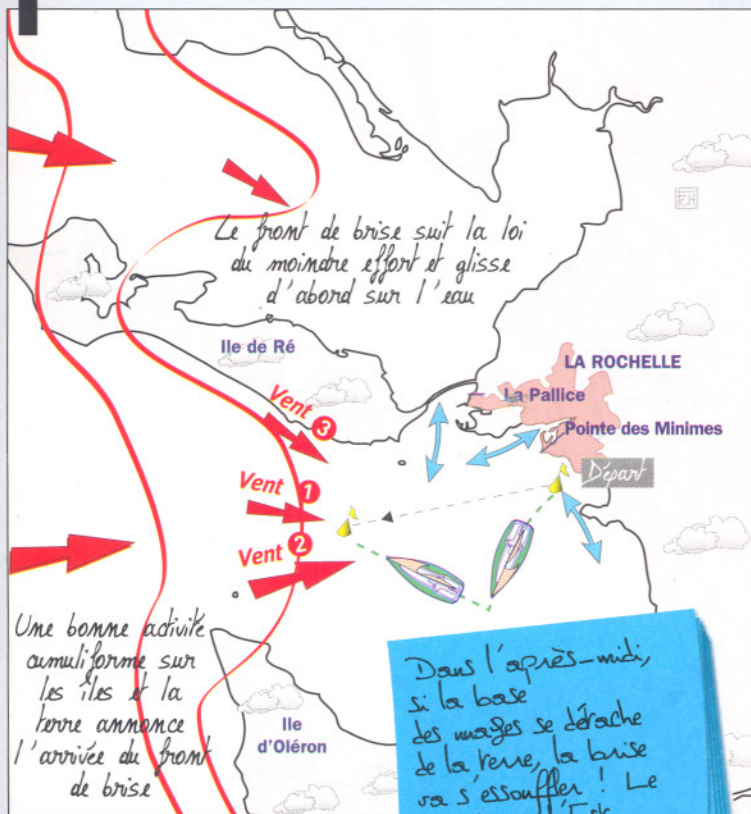 Le front de brise suit la loi
du moindre effort et glisse
d'abord sur l'eau
Ile de Ré
LA ROCHELLE
La Pallice
Pointe des Minimes
Départ
Vent 3
Vent 1
Vent 2
Une bonne activité
cumuliforme sur
les îles et la
terre annonce
l'arrivée du front
de brise
Ile
d'Oléron
Dans l'après-midi,
si la base
des nuages se détache
de la terre, la brise
va s'essouffler ! Le
l'Est